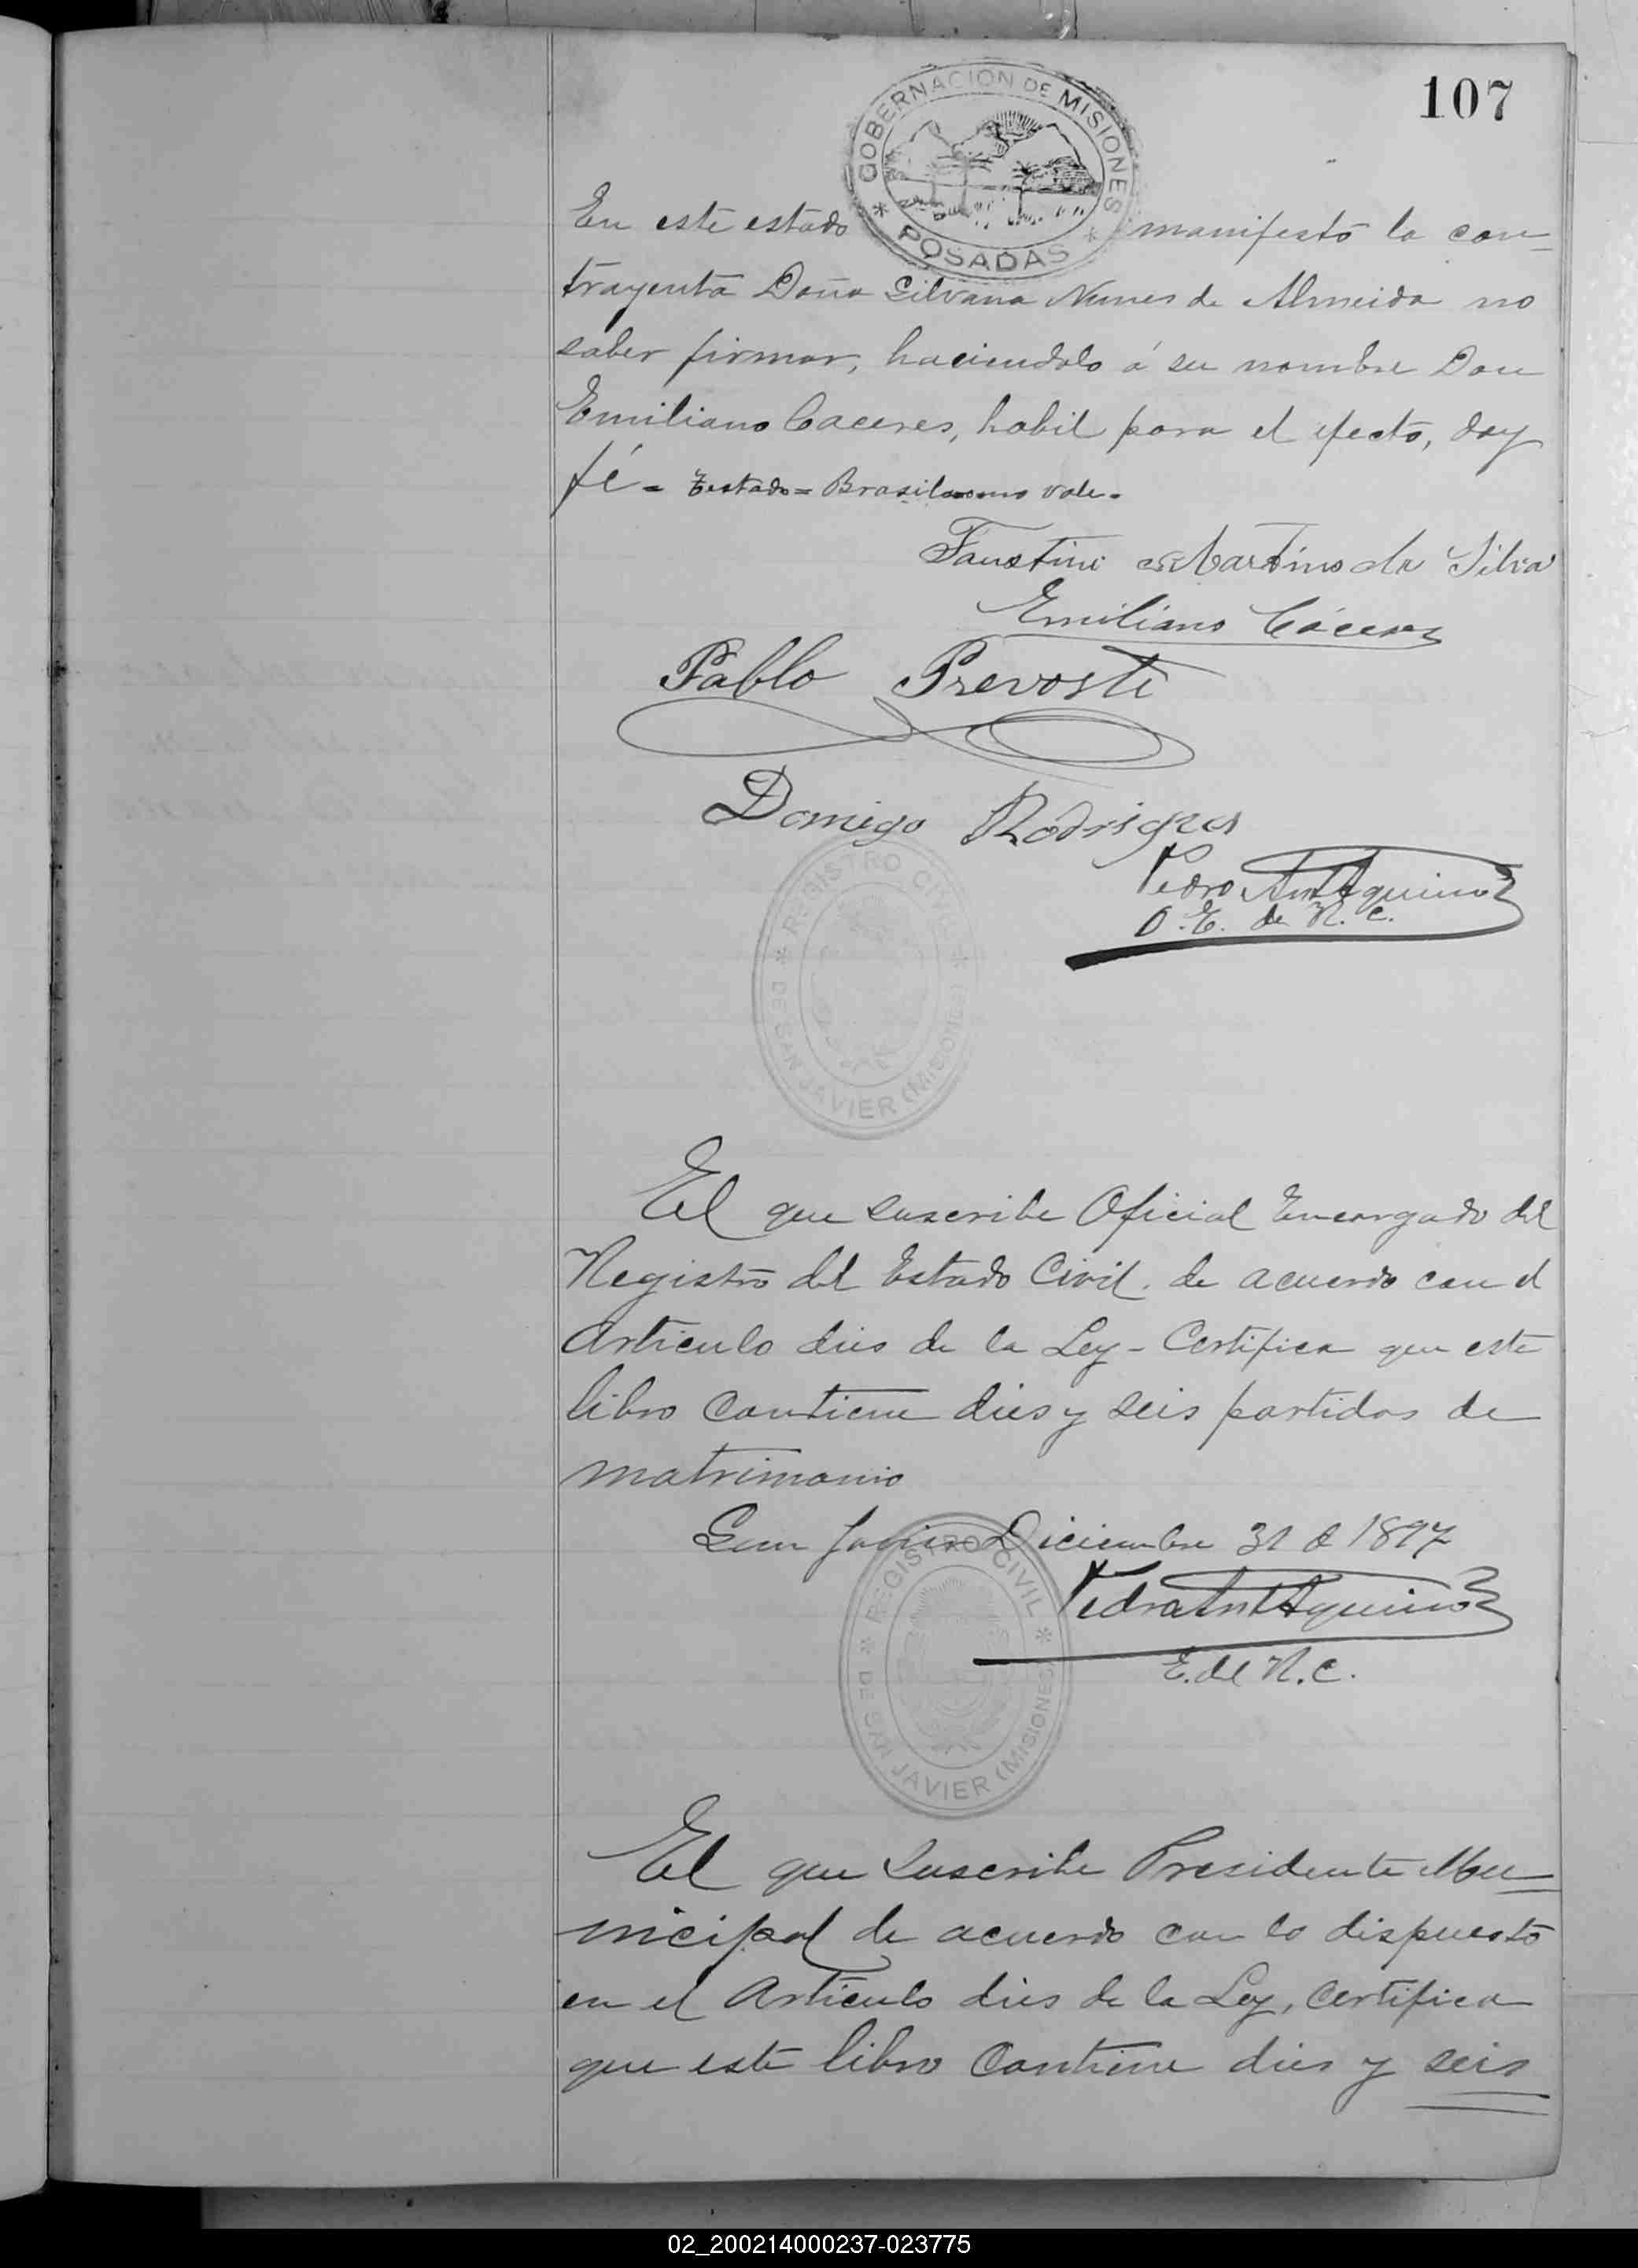 107
GOBERNACION DE MISIONES
* POSADAS *
En este estado manifestó la con=
trayenta Doña Silvana Nunes de Almeida no
saber firmar, haciendolo á su nombre Don
Emiliano Caceres, habil para el efecto, doy
fé = Testado = Brasilera no vale.
Faustino Martins da Silva
Emiliano Cáceres
Pablo Prevosti
Domigo Rodrigues
Pedro Ant Aquino
O. E. de R. C.
* REGISTRO CIVIL *
DE SAN JAVIER (MISIONES)
El que suscribe Oficial Encargado del
Registro del Estado Civil. de acuerdo con el
Articulo dies de la Ley - Certifica que este
libro contiene dies y seis partidas de
matrimonio
San Javier Diciembre 31 de 1897
Pedro Ant Aquino
E. del R. C.
* REGISTRO CIVIL *
DE SAN JAVIER (MISIONES)
El que suscribe Presidente Mu=
nicipal de acuerdo con lo dispuesto
en el Articulo dies de la Ley, Certifica
que este libro contiene dies y seis
02_200214000237-023775